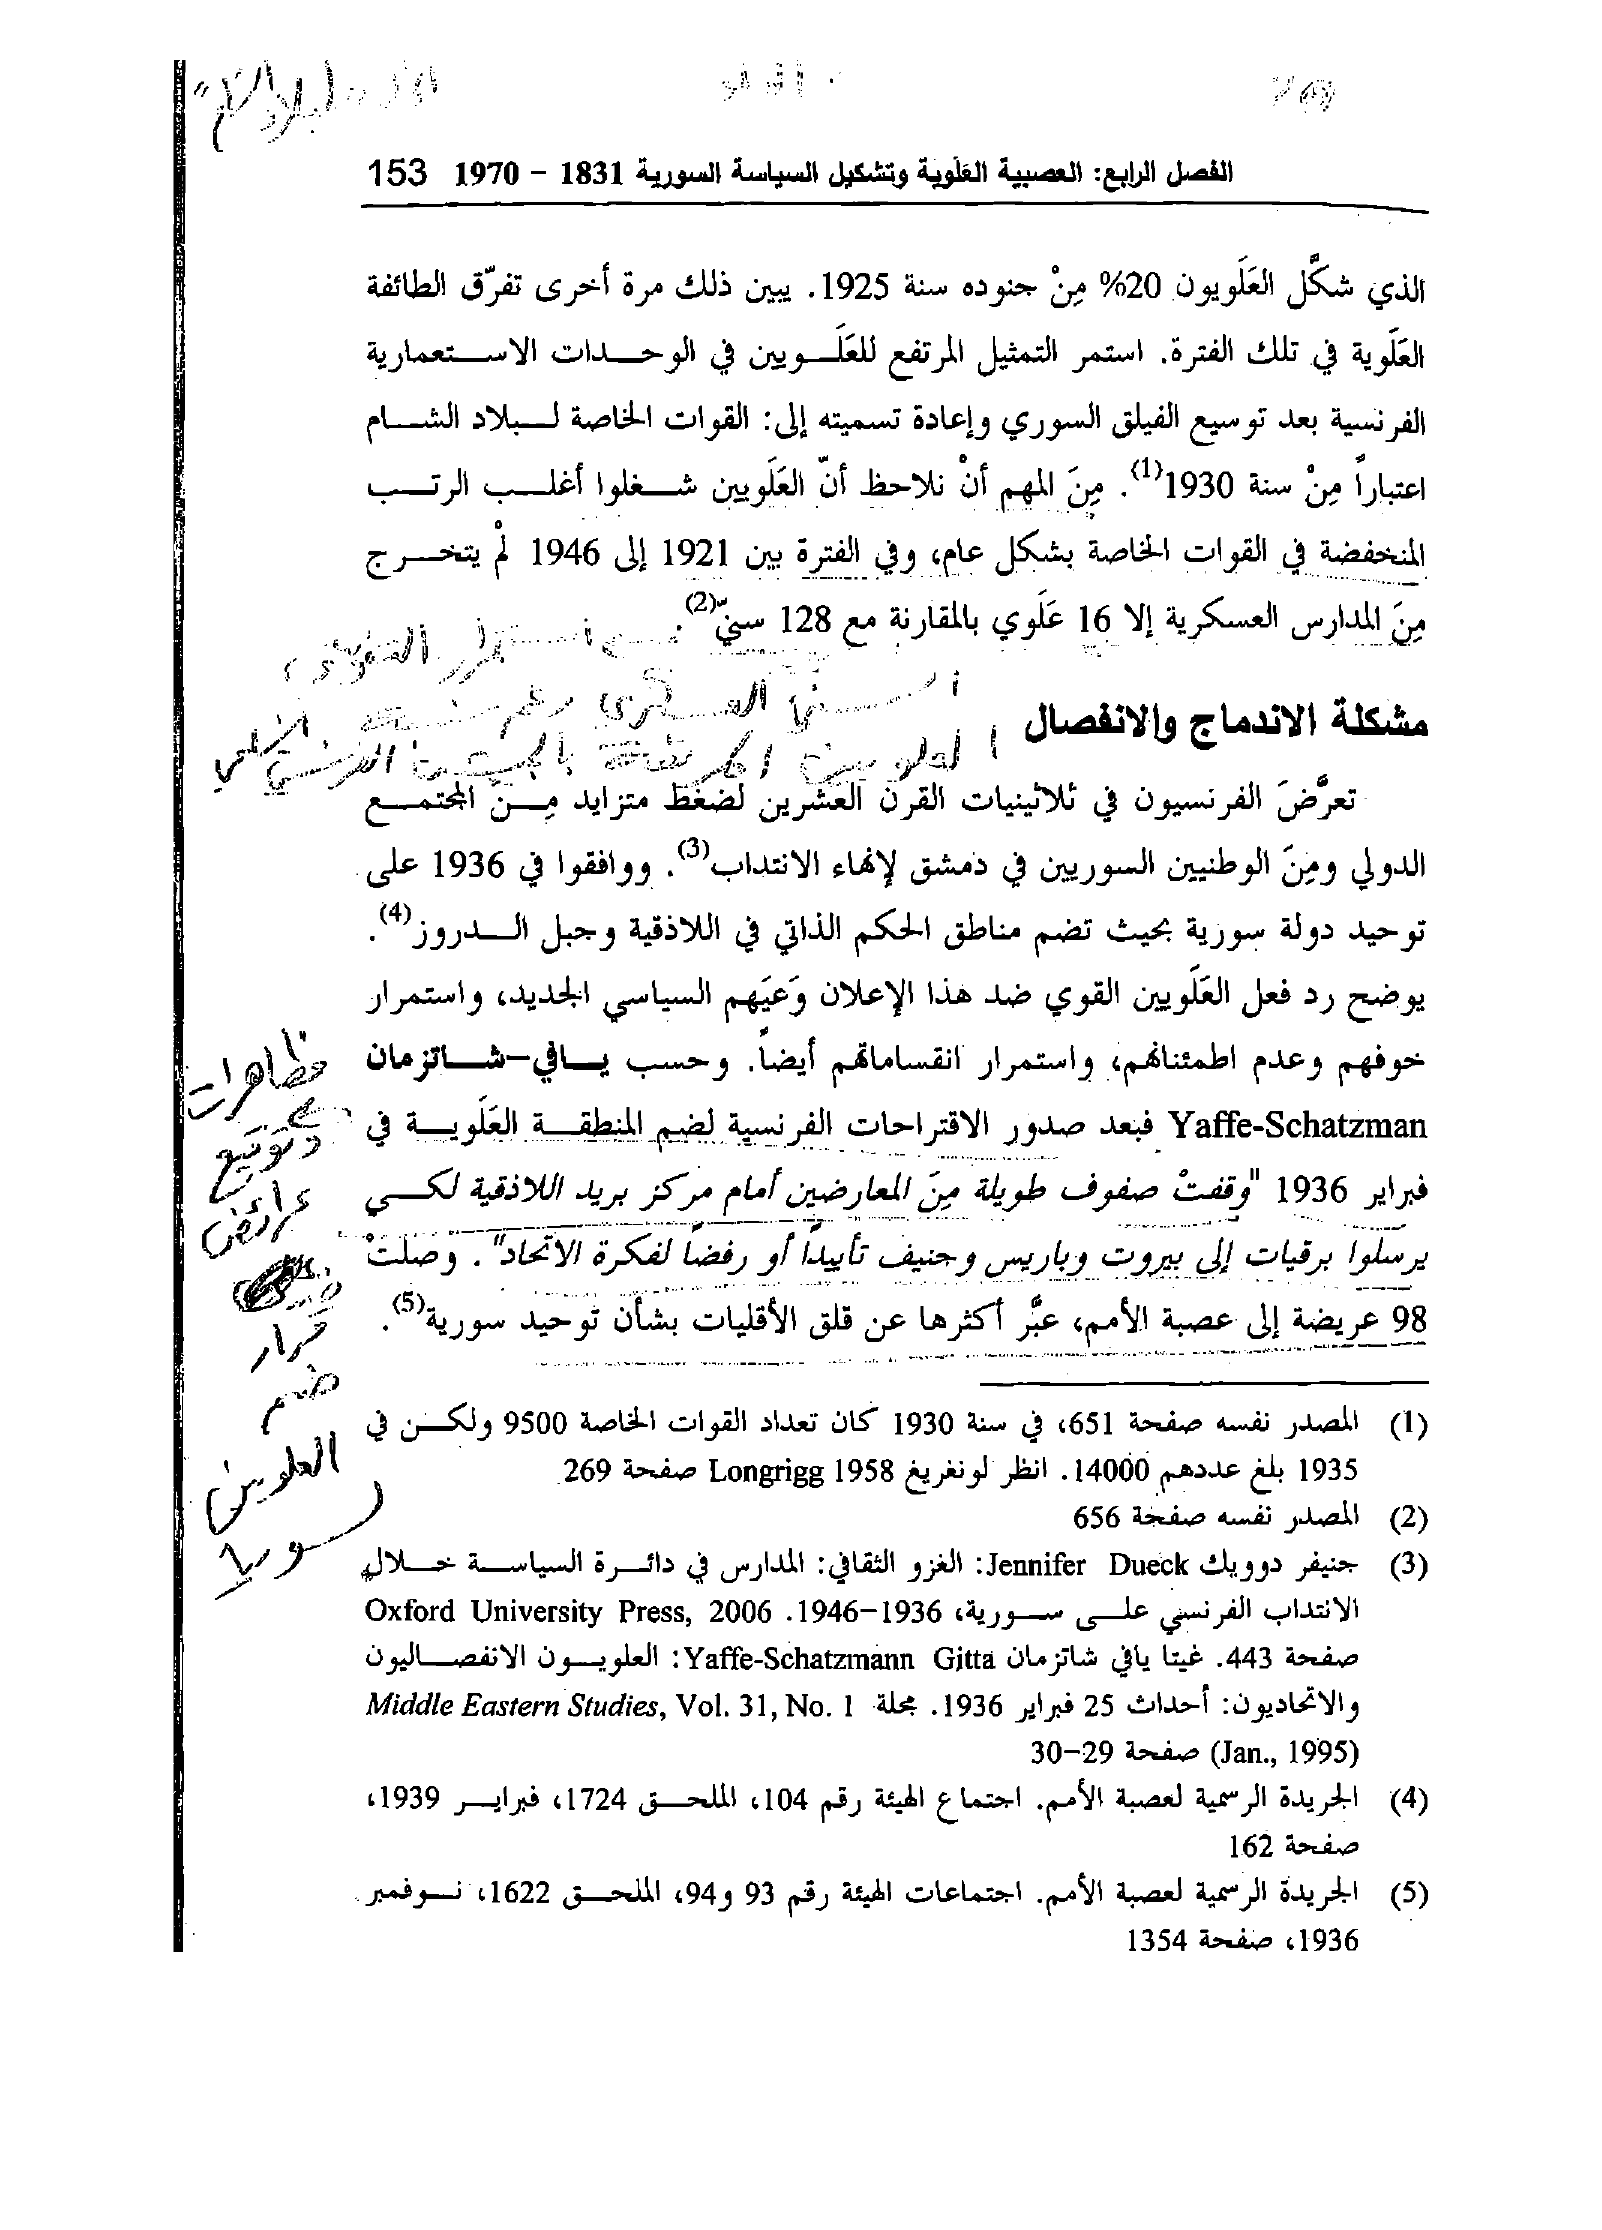 "لبلاد الشام"
الفصل الرابع: العصبية العَلَوية وتشكيل السياسة السورية 1831 – 1970 153
الذي شكَّل العَلَويون 20% مِنْ جنوده سنة 1925. يبين ذلك مرة أخرى تفرّق الطائفة
العَلَوية في تلك الفترة. استمر التمثيل المرتفع للعَلَـــويين في الوحـــدات الاســـتعمارية
الفرنسية بعد توسيع الفيلق السوري وإعادة تسميته إلى: القوات الخاصة لـــبلاد الشـــام
اعتباراً مِنْ سنة 1930(1). مِنَ المهم أنْ نلاحظ أنّ العَلَويين شـــغلوا أغلـــب الرتـــب
المنخفضة في القوات الخاصة بشكل عام، وفي الفترة بين 1921 إلى 1946 لمْ يتخـــرج
مِنَ المدارس العسكرية إلا 16 عَلَوي بالمقارنة مع 128 سنيّ(2).
استمرار التفوق
السني العسكري رغم نسبة
العلويين المرتفعة بالجيش الفرنسي
مشكلة الاندماج والانفصال
تعرَّضَ الفرنسيون في ثلاثينيات القرن العشرين لضغط متزايد مِـــنَ المجتمـــع
الدولي ومِنَ الوطنيين السوريين في دمشق لإنهاء الانتداب(3). ووافقوا في 1936 على
توحيد دولة سورية بحيث تضم مناطق الحكم الذاتي في اللاذقية وجبل الـــدروز(4).
يوضح رد فعل العَلَويين القوي ضد هذا الإعلان وَعيَهم السياسي الجديد، واستمرار
خوفهم وعدم اطمئنانهم، واستمرار انقساماتهم أيضاً. وحسب يـــافي–شـــاتزمان
Yaffe-Schatzman فبعد صدور الاقتراحات الفرنسية لضم المنطقـــة العَلَويـــة في
فبراير 1936 "وقفتْ صفوف طويلة مِنَ المعارضين أمام مركز بريد اللاذقية لكـــي
يرسلوا برقيات إلى بيروت وباريس وجنيف تأييداً أو رفضاً لفكرة الاتحاد". وصلتْ
98 عريضة إلى عصبة الأمم، عبَّر أكثرها عن قلق الأقليات بشأن توحيد سورية(5).
مظاهرات
وتوقيع
عرائض
قرار
ضم
العلويين
سوريا
(1) المصدر نفسه صفحة 651، في سنة 1930 كان تعداد القوات الخاصة 9500 ولكـــن في
1935 بلغ عددهم 14000. انظر لونغريغ Longrigg 1958 صفحة 269
(2) المصدر نفسه صفحة 656
(3) جنيفر دوويك Jennifer Dueck: الغزو الثقافي: المدارس في دائـــرة السياســـة خـــلال
الانتداب الفرنسي علـــى ســـورية، 1936–1946. Oxford University Press, 2006
صفحة 443. غيتا يافي شاتزمان Yaffe-Schatzmann Gitta: العلويـــون الانفصـــاليون
والاتحاديون: أحداث 25 فبراير 1936. مجلة Middle Eastern Studies, Vol. 31, No. 1
(Jan., 1995) صفحة 29–30
(4) الجريدة الرسمية لعصبة الأمم. اجتماع الهيئة رقم 104، الملحـــق 1724، فبرايـــر 1939،
صفحة 162
(5) الجريدة الرسمية لعصبة الأمم. اجتماعات الهيئة رقم 93 و94، الملحـــق 1622، نـــوفمبر
1936، صفحة 1354